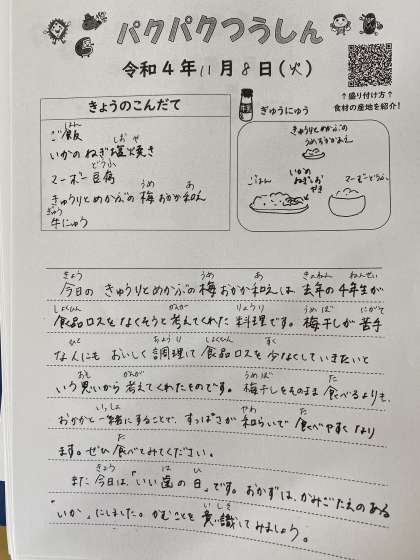 パクパクつうしん
令和4年11月8日(火)
↑盛り付け方↑
食材の産地を紹介!
きょうのこんだて
ご飯
いかのねぎ塩焼き
マーボー豆腐
きゅうりとめかぶの梅おかか和え
牛にゅう
ぎゅうにゅう
きゅうりとめかぶの
うめおかかあえ
ごはん
いかの
ねぎしお
やき
マーボーどうふ
今日の きゅうりとめかぶの梅おかか和えは、去年の4年生が
食品ロスをなくそうと考えてくれた料理です。梅干しが苦手
な人にも おいしく調理して食品ロスを少なくしていきたいと
いう思いから考えてくれたものです。梅干しをそのまま食べるよりも、
おかかと一緒にすることで、すっぱさが和らいで食べやすくなり
ます。ぜひ食べてみてください。
また今日は、「いい歯の日」です。おかずは、かみごたえのある
「いか」にしました。かむことを意識してみましょう。